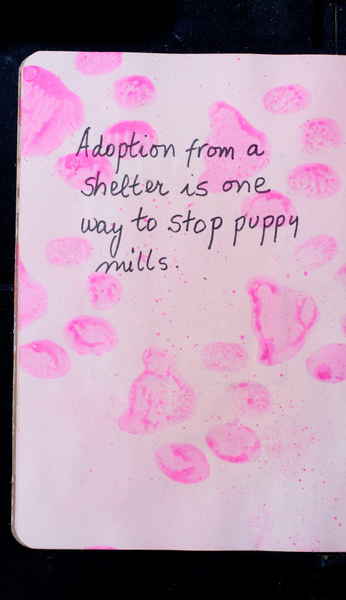 Adoption from a
shelter is one
way to stop puppy
mills.